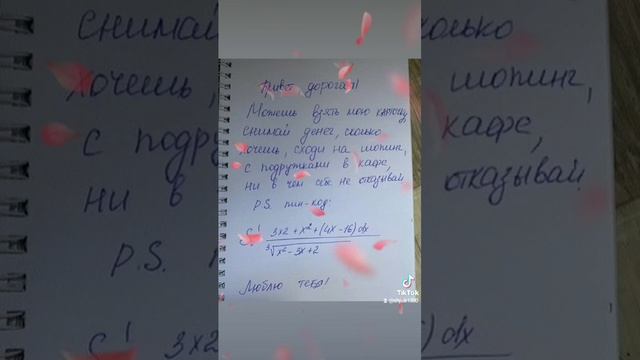 Привет дорогая!
Можешь взять мою карточку
снимай денег, сколько
хочешь, сходи на шопинг,
с подружками в кафе,
ни в чем себе не отказывай
P.S. пин-код:
3x2 + x² + (4x - 16) dx
³√x² - 3x + 2
Люблю тебя!
снимай
сколько
хочешь,
шопинг,
с подру
кафе,
ни в
отказывай
P.S.
3x2
dx
TikTok